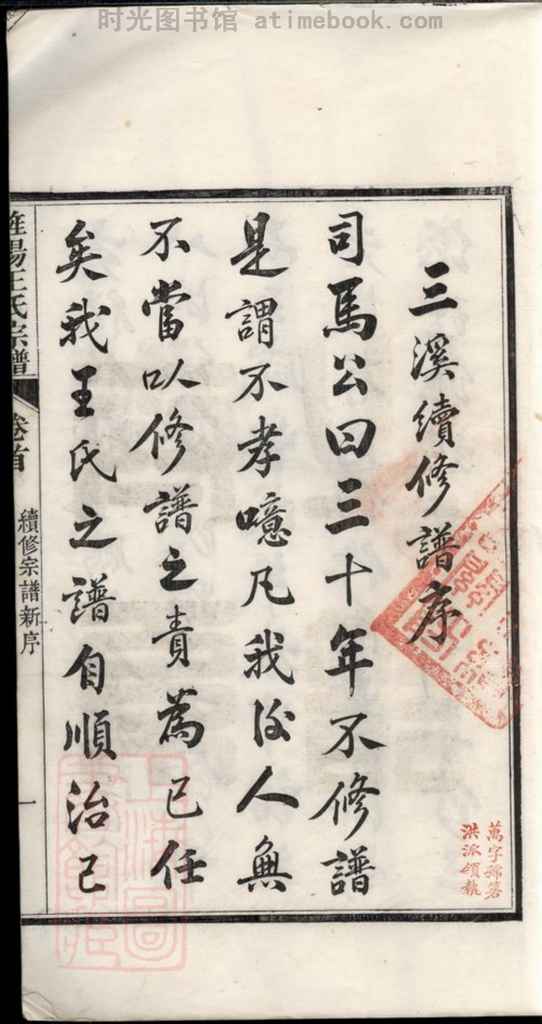 时光图书馆 - atimebook.com
三溪續修譜序
司馬公曰三十年不修譜
是謂不孝噫凡我後人無
不當以修譜之責為已任
矣我王氏之譜自順治己
旌陽王氏宗譜
卷首
續修宗譜新序
一
萬字號著
洪派領執
上海圖
書館藏